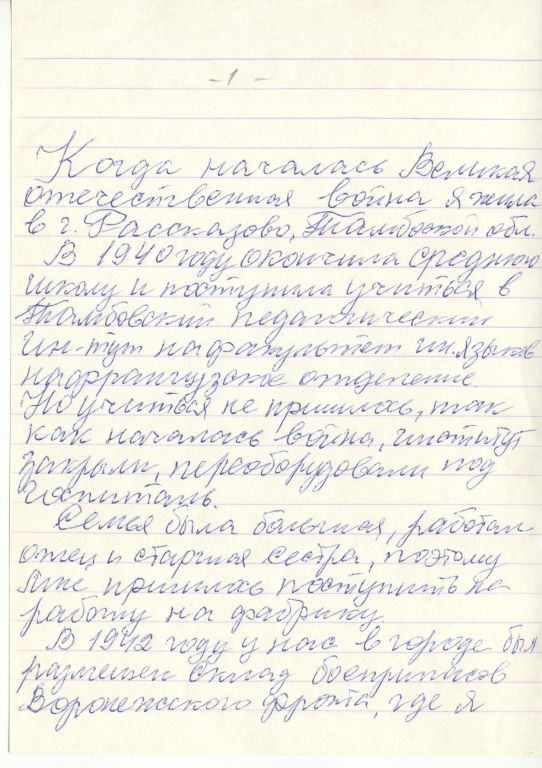 - 1 -
Когда началась Великая
отечественная война я жила
в г. Рассказово, Тамбовской обл.
В 1940 году окончила среднюю
школу и поступила учиться в
Тамбовский педагогический
ин-тут на факультет ин. языков
на французское отделение.
Но учиться не пришлось, так
как началась война, институт
закрыли, переоборудовали под
госпиталь.
Семья была большая, работал
отец и старшая сестра, поэтому
мне пришлось поступить на
работу на фабрику
В 1942 году у нас в городе был
размещен склад боеприпасов
Воронежского фронта, где я